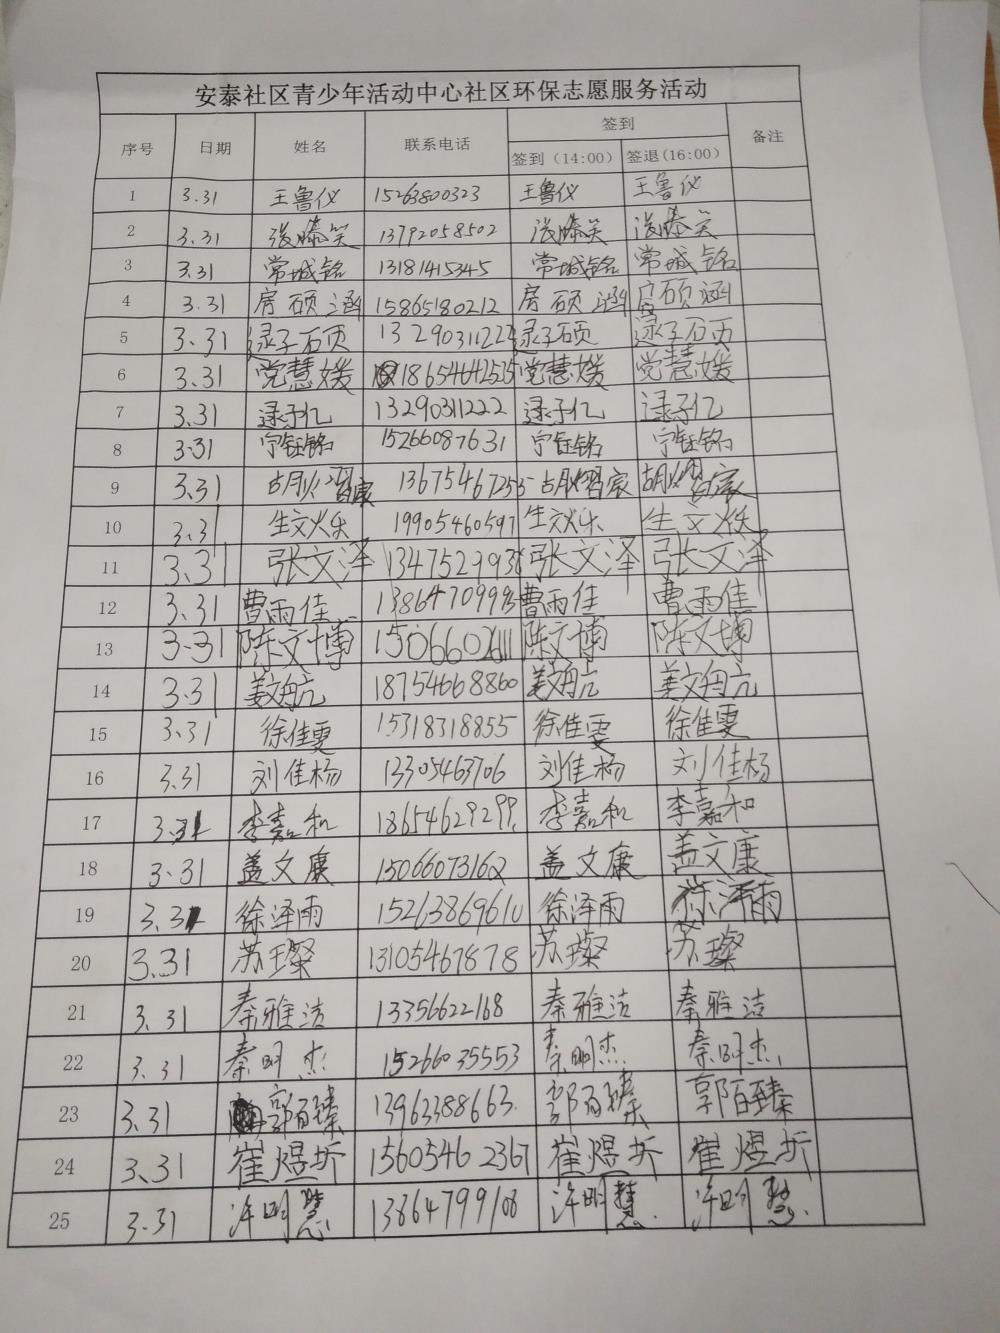 安泰社区青少年活动中心社区环保志愿服务活动
序号 日期 姓名 联系电话 签到 备注
签到（14:00） 签退(16:00)
1 3.31 王鲁仪 15263800323 王鲁仪 王鲁仪
2 3.31 张滕笑 13792058502 张滕笑 张滕笑
3 3.31 常城铭 13181415345 常城铭 常城铭
4 3.31 房硕涵 15865180212 房硕涵 房硕涵
5 3.31 逯子硕 13290311222 逯子硕 逯子硕
6 3.31 党慧媛 18654642525 党慧媛 党慧媛
7 3.31 逯子亿 13290311222 逯子亿 逯子亿
8 3.31 宁钰铭 15266087631 宁钰铭 宁钰铭
9 3.31 13675467255
10 3.31 生文烁 19905460597 生文烁 生文烁
11 3.31 张文泽 张文泽 张文泽
12 3.31 曹雨佳 曹雨佳 曹雨佳
13 3.31 陈文博 陈文博 陈文博
14 3.31 姜文舟亢 18754668860 姜文舟亢 姜文舟亢
15 3.31 徐佳雯 15318318855 徐佳雯 徐佳雯
16 3.31 刘佳杨 13305463706 刘佳杨 刘佳杨
17 3.31 李嘉和 18654629299 李嘉和 李嘉和
18 3.31 盖文康 15066073162 盖文康 盖文康
19 3.31 徐泽雨 15263869610 徐泽雨 徐泽雨
20 3.31 苏璨 13105467878 苏璨 苏璨
21 3.31 秦雅洁 13356622168 秦雅洁 秦雅洁
22 3.31 秦明杰 15266035553 秦明杰 秦明杰
23 3.31 郭百臻 13963388663 郭百臻 郭百臻
24 3.31 崔煜圻 15605462367 崔煜圻 崔煜圻
25 3.31 许明慧 13864799108 许明慧 许明慧